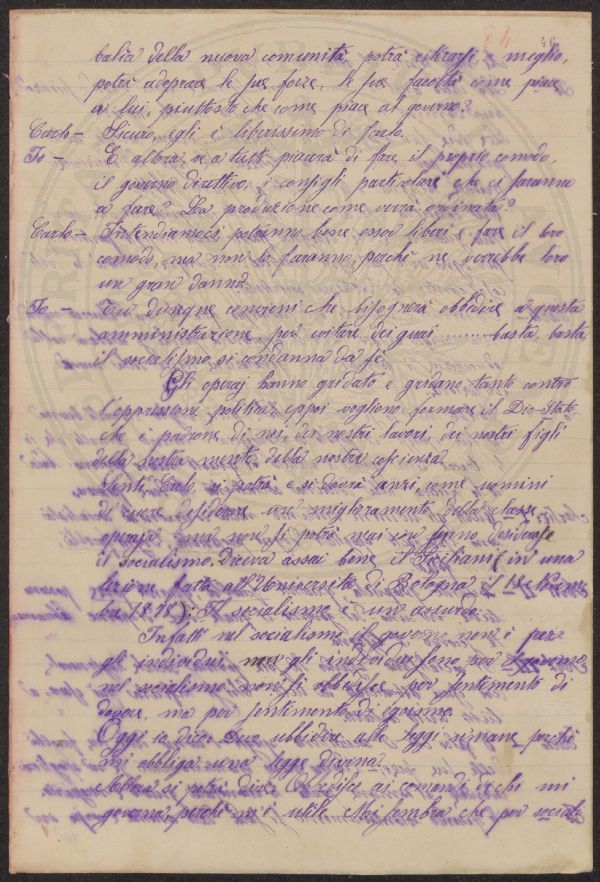 84 46
balìa della nuova comunità, potrà ritirarsi meglio,
potrà adoprare le sue forze, le sue facoltà come piace
a lui, piuttosto che come piace al governo?
Carlo – Sicuro, egli è liberissimo di farlo.
Io – E allora, se a tutti piacerà di fare il proprio comodo,
il governo direttivo, i consigli particolari che ci faranno
a fare? La produzione come verrà ordinata?
Carlo – Intendiamoci, potranno bene esser liberi e fare il loro
comodo, ma non lo faranno, perchè ne verrebbe loro
un gran danno.
Io – Tu dunque convieni che bisognerà obbidire a questa
amministrazione per evitare dei guai ........ basta, basta,
il socialismo si condanna da sè.
Gli operaj hanno gridato e gridano tanto contro
l'oppressione politica eppoi vogliono formare il Dio-Stato
che è padrone di noi, dei nostri lavori, dei nostri figli
della nostra mente, della nostra coscienza.
Senti Carlo, si potrà e si dovrà anzi come uomini
di cuore desiderare un miglioramento della classe
operaja ma non si potrà mai con senno desiderare
il socialismo. Diceva assai bene il Siciliani (in una
lezione fatta all'Università di Bologna il
1878): Il socialismo è un assurdo.
Infatti nel socialismo il governo non è per
gli individui, gli individui sono pel governo
nel socialismo non si obbidisce per sentimento di
dovere, ma per sentimento di egoismo.
Oggi io dico: Devo ubbidire alle leggi umane perchè
mi obbliga una legge divina.
Allora si potrà dire: Obbedisco ai comandi di chi mi
governa, perchè m'è utile. Mi sembra che pei sociali-